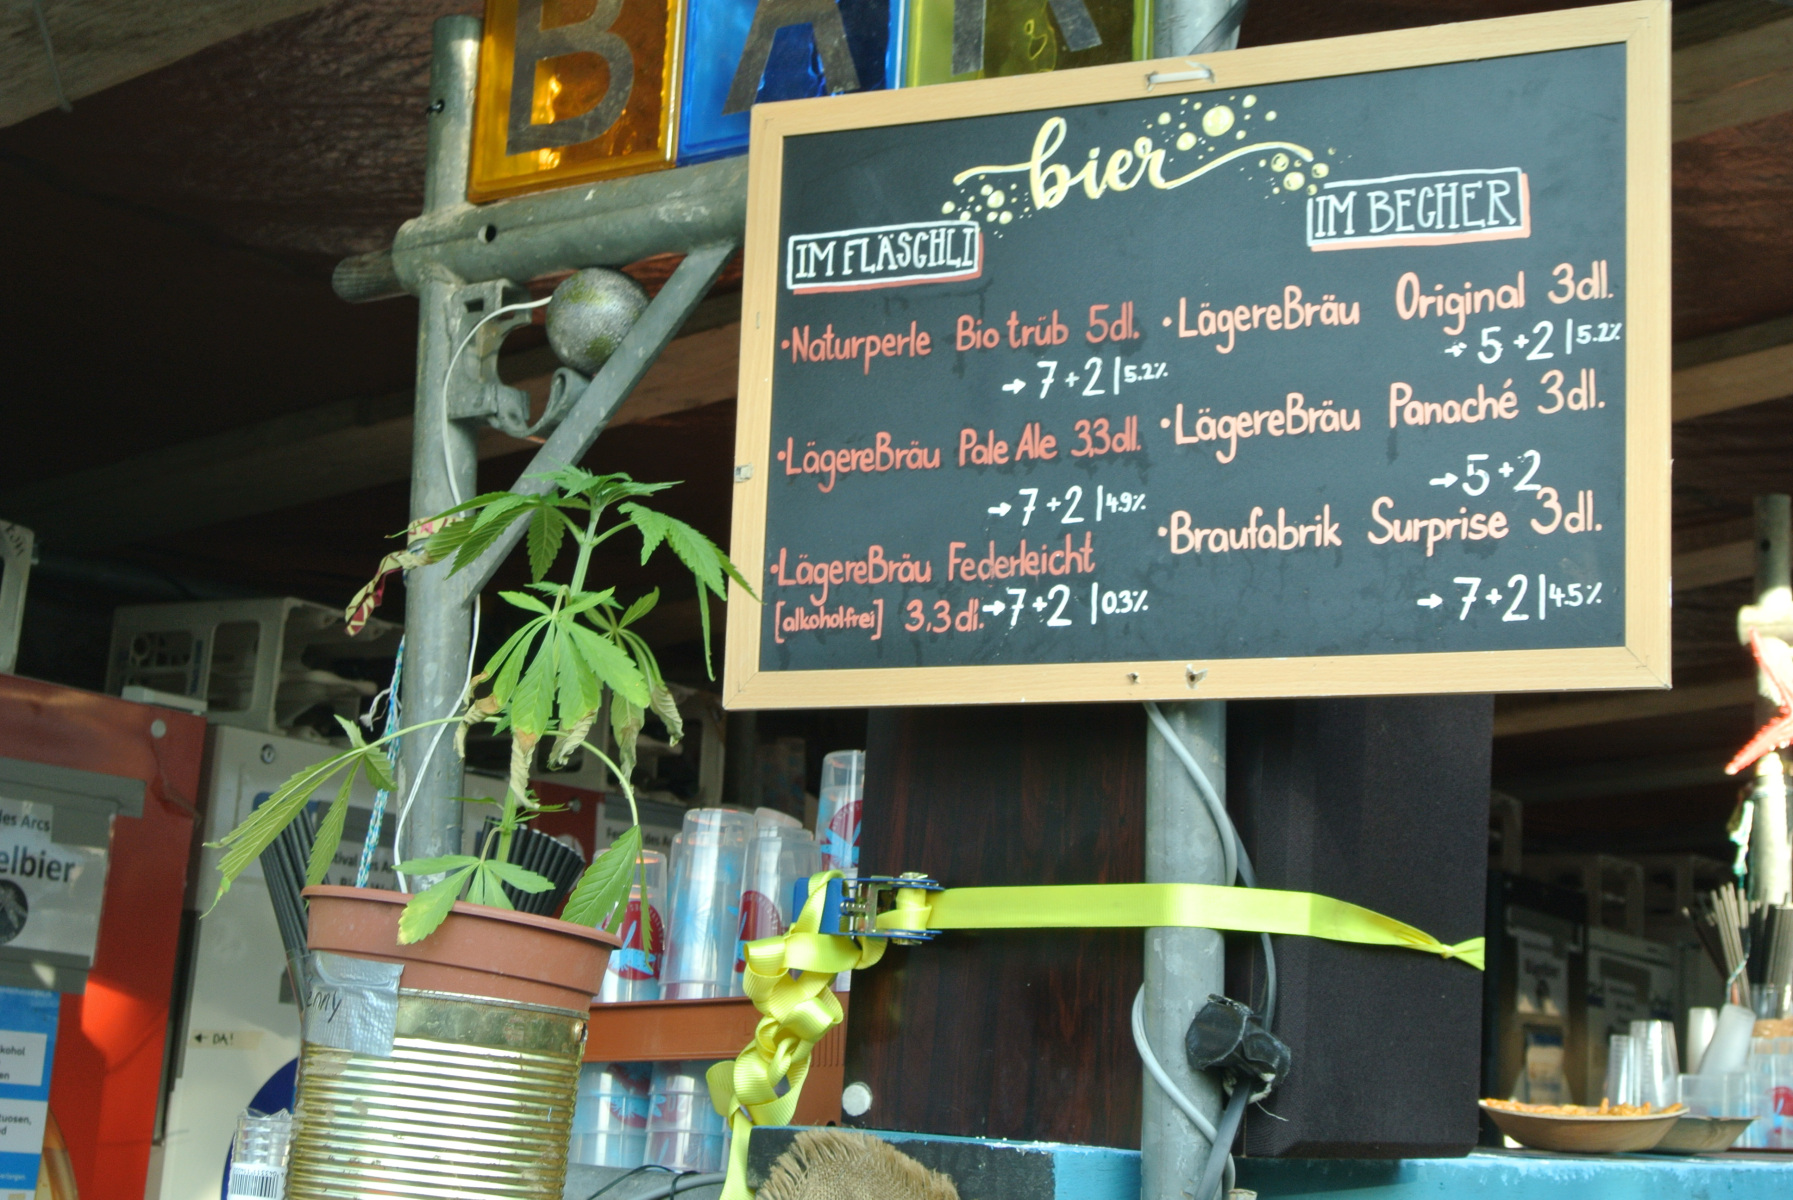 BAR
bier
IM FLÄSCHLI
• Naturperle Bio trüb 5dl.
→ 7 + 2 | 5.2%
• LägereBräu Pale Ale 3,3dl.
→ 7 + 2 | 4.9%
• LägereBräu Federleicht
[alkoholfrei] 3,3 dl. → 7 + 2 | 0.3%
IM BECHER
• LägereBräu Original 3dl.
→ 5 + 2 | 5.2%
• LägereBräu Panaché 3dl.
→ 5 + 2
• Braufabrik Surprise 3dl.
→ 7 + 2 | 4.5%
des Arcs
elbier
← DA!